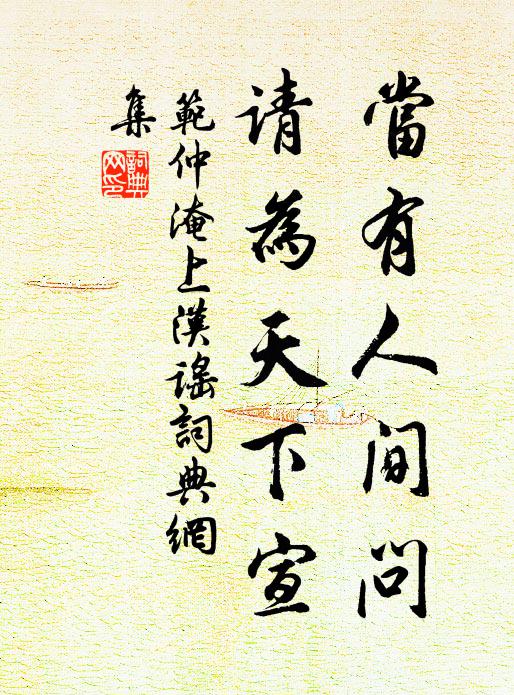 當有人間問
請為天下宣
範仲淹上漢謠詞典網
集
詞典
网印